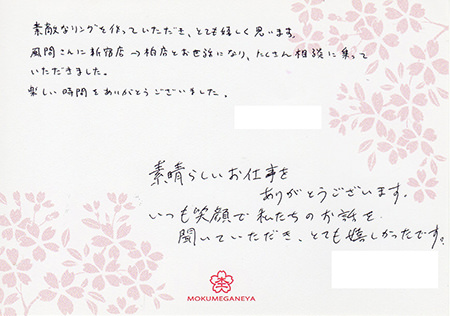 素敵なリングを作っていただき、とても嬉しく思います。
風間さんに新宿店→柏店とお世話になり、たくさん相談に乗って
いただきました。
楽しい時間をありがとうございました。
素晴らしいお仕事を
ありがとうございます。
いつも笑顔で私たちのお話を
聞いていただき、とても嬉しかったです。
MOKUMEGANEYA